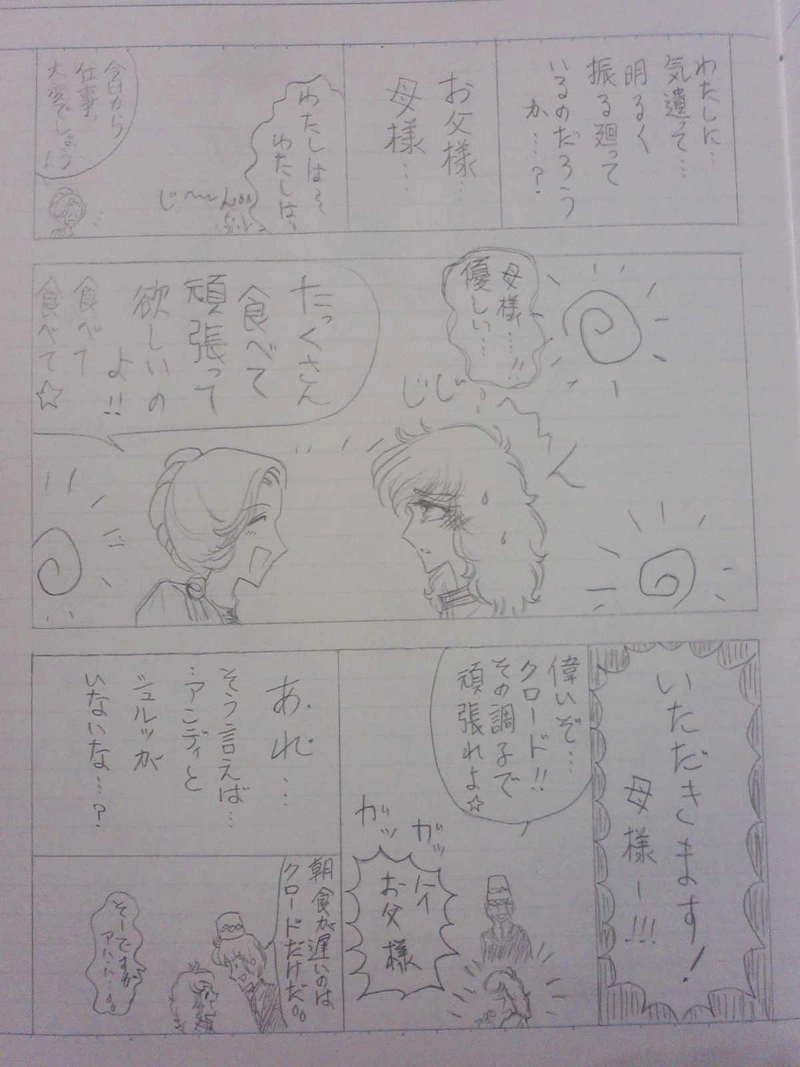 わたしに…
気遣って…
明るく
振る廻って
いるのだろう
か…?
お父様…
母様…
わたしは〜
わたしは〜
じ〜〜ん
今日から
仕事、
大変でしょう
母様…!!
優しい…
じじ〜〜ん
たっくさん
食べて
頑張って
欲しいの
よ!!
食べて
食べて☆
いただきます!
母様ー!!!
偉いぞ…
クロード!!
その調子で
頑張れよ☆
ガッ
ガッ
お父様
あれ…
そう言えば…
…アンディと
シュルッが
いないな…?
朝食が遅いのは
クロードだけだ。
そーですか